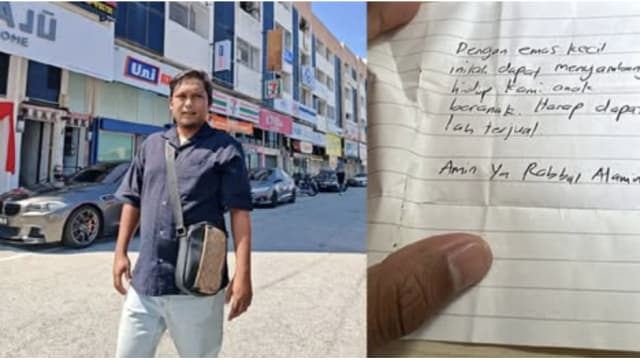 AJŪ
HOME
Uni
7-ELEVEN
Dengan emas kecil
inilah dapat menyambun
hidup kami anak
beranak. Harap dapa
lah terjual
Amin Ya Rabbal Alamin